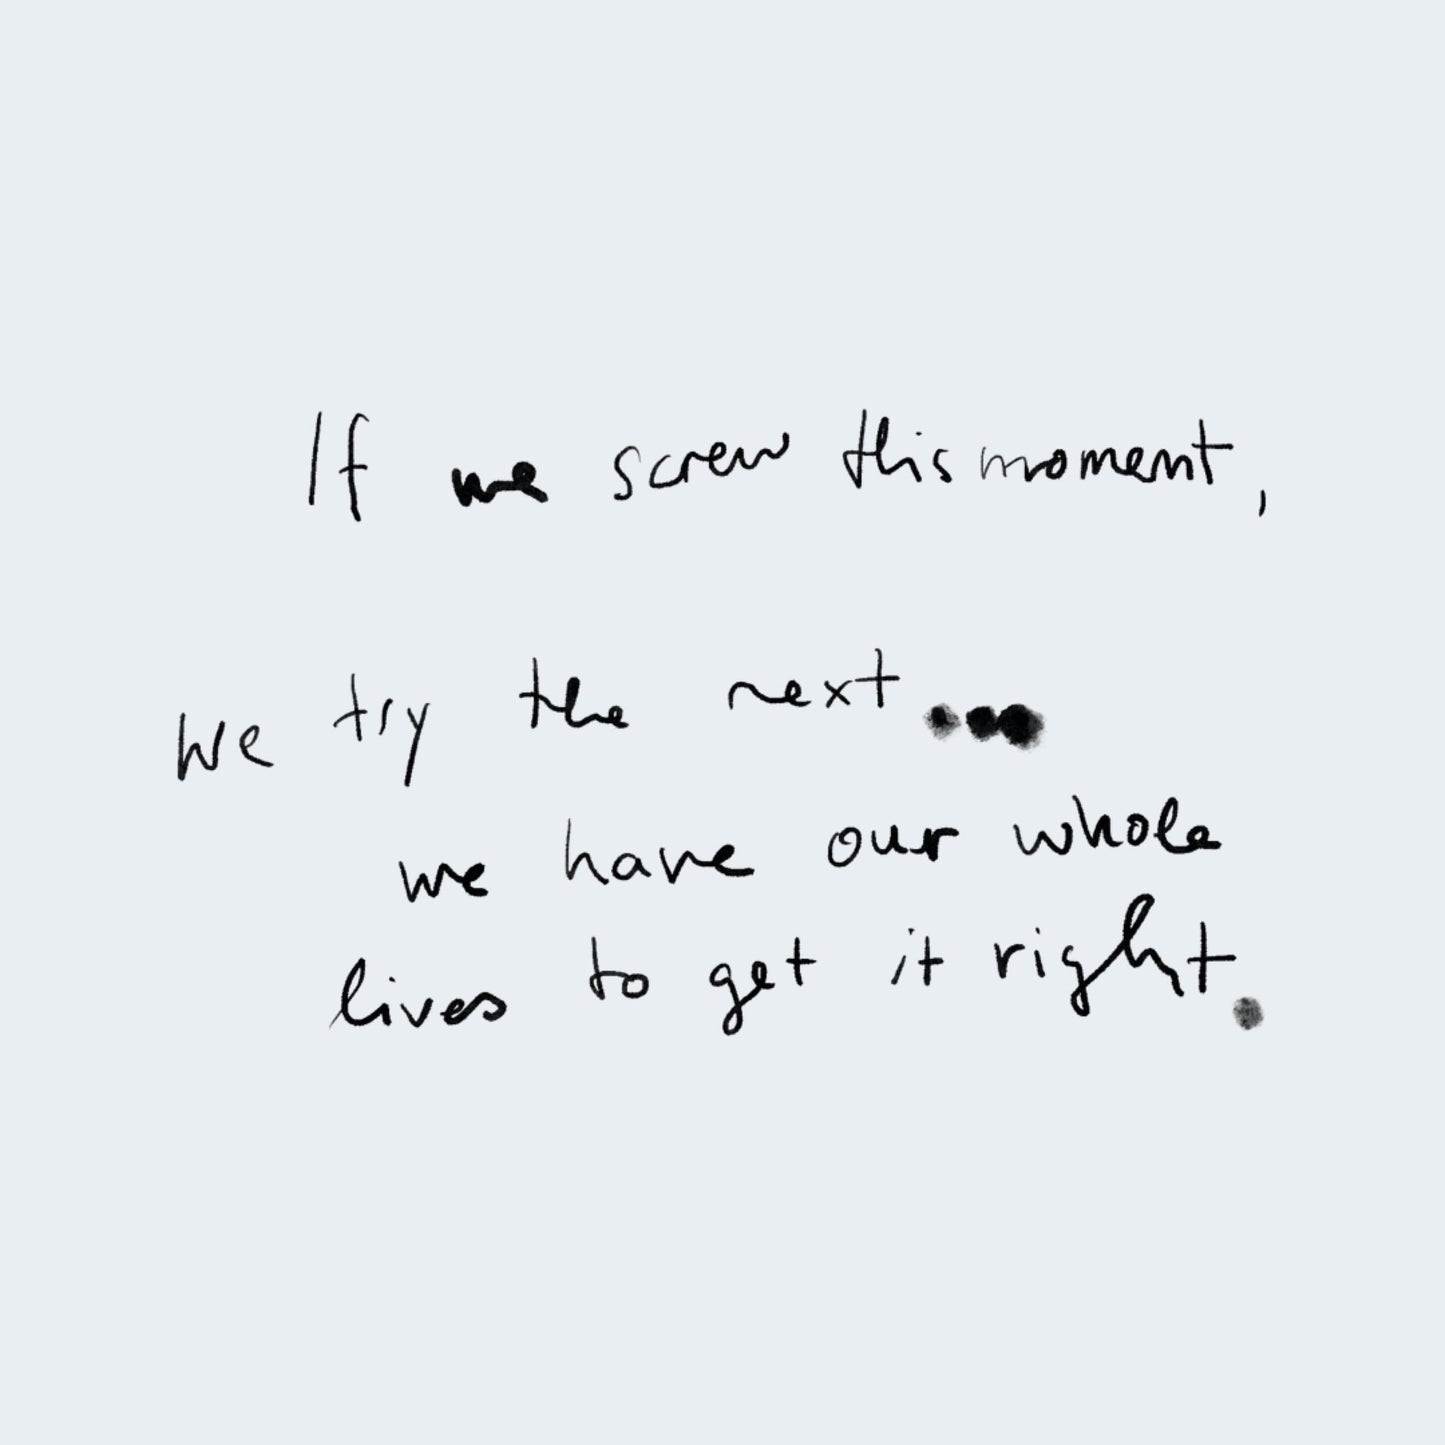 If we screw this moment,
we try the next...
we have our whole
lives to get it right.